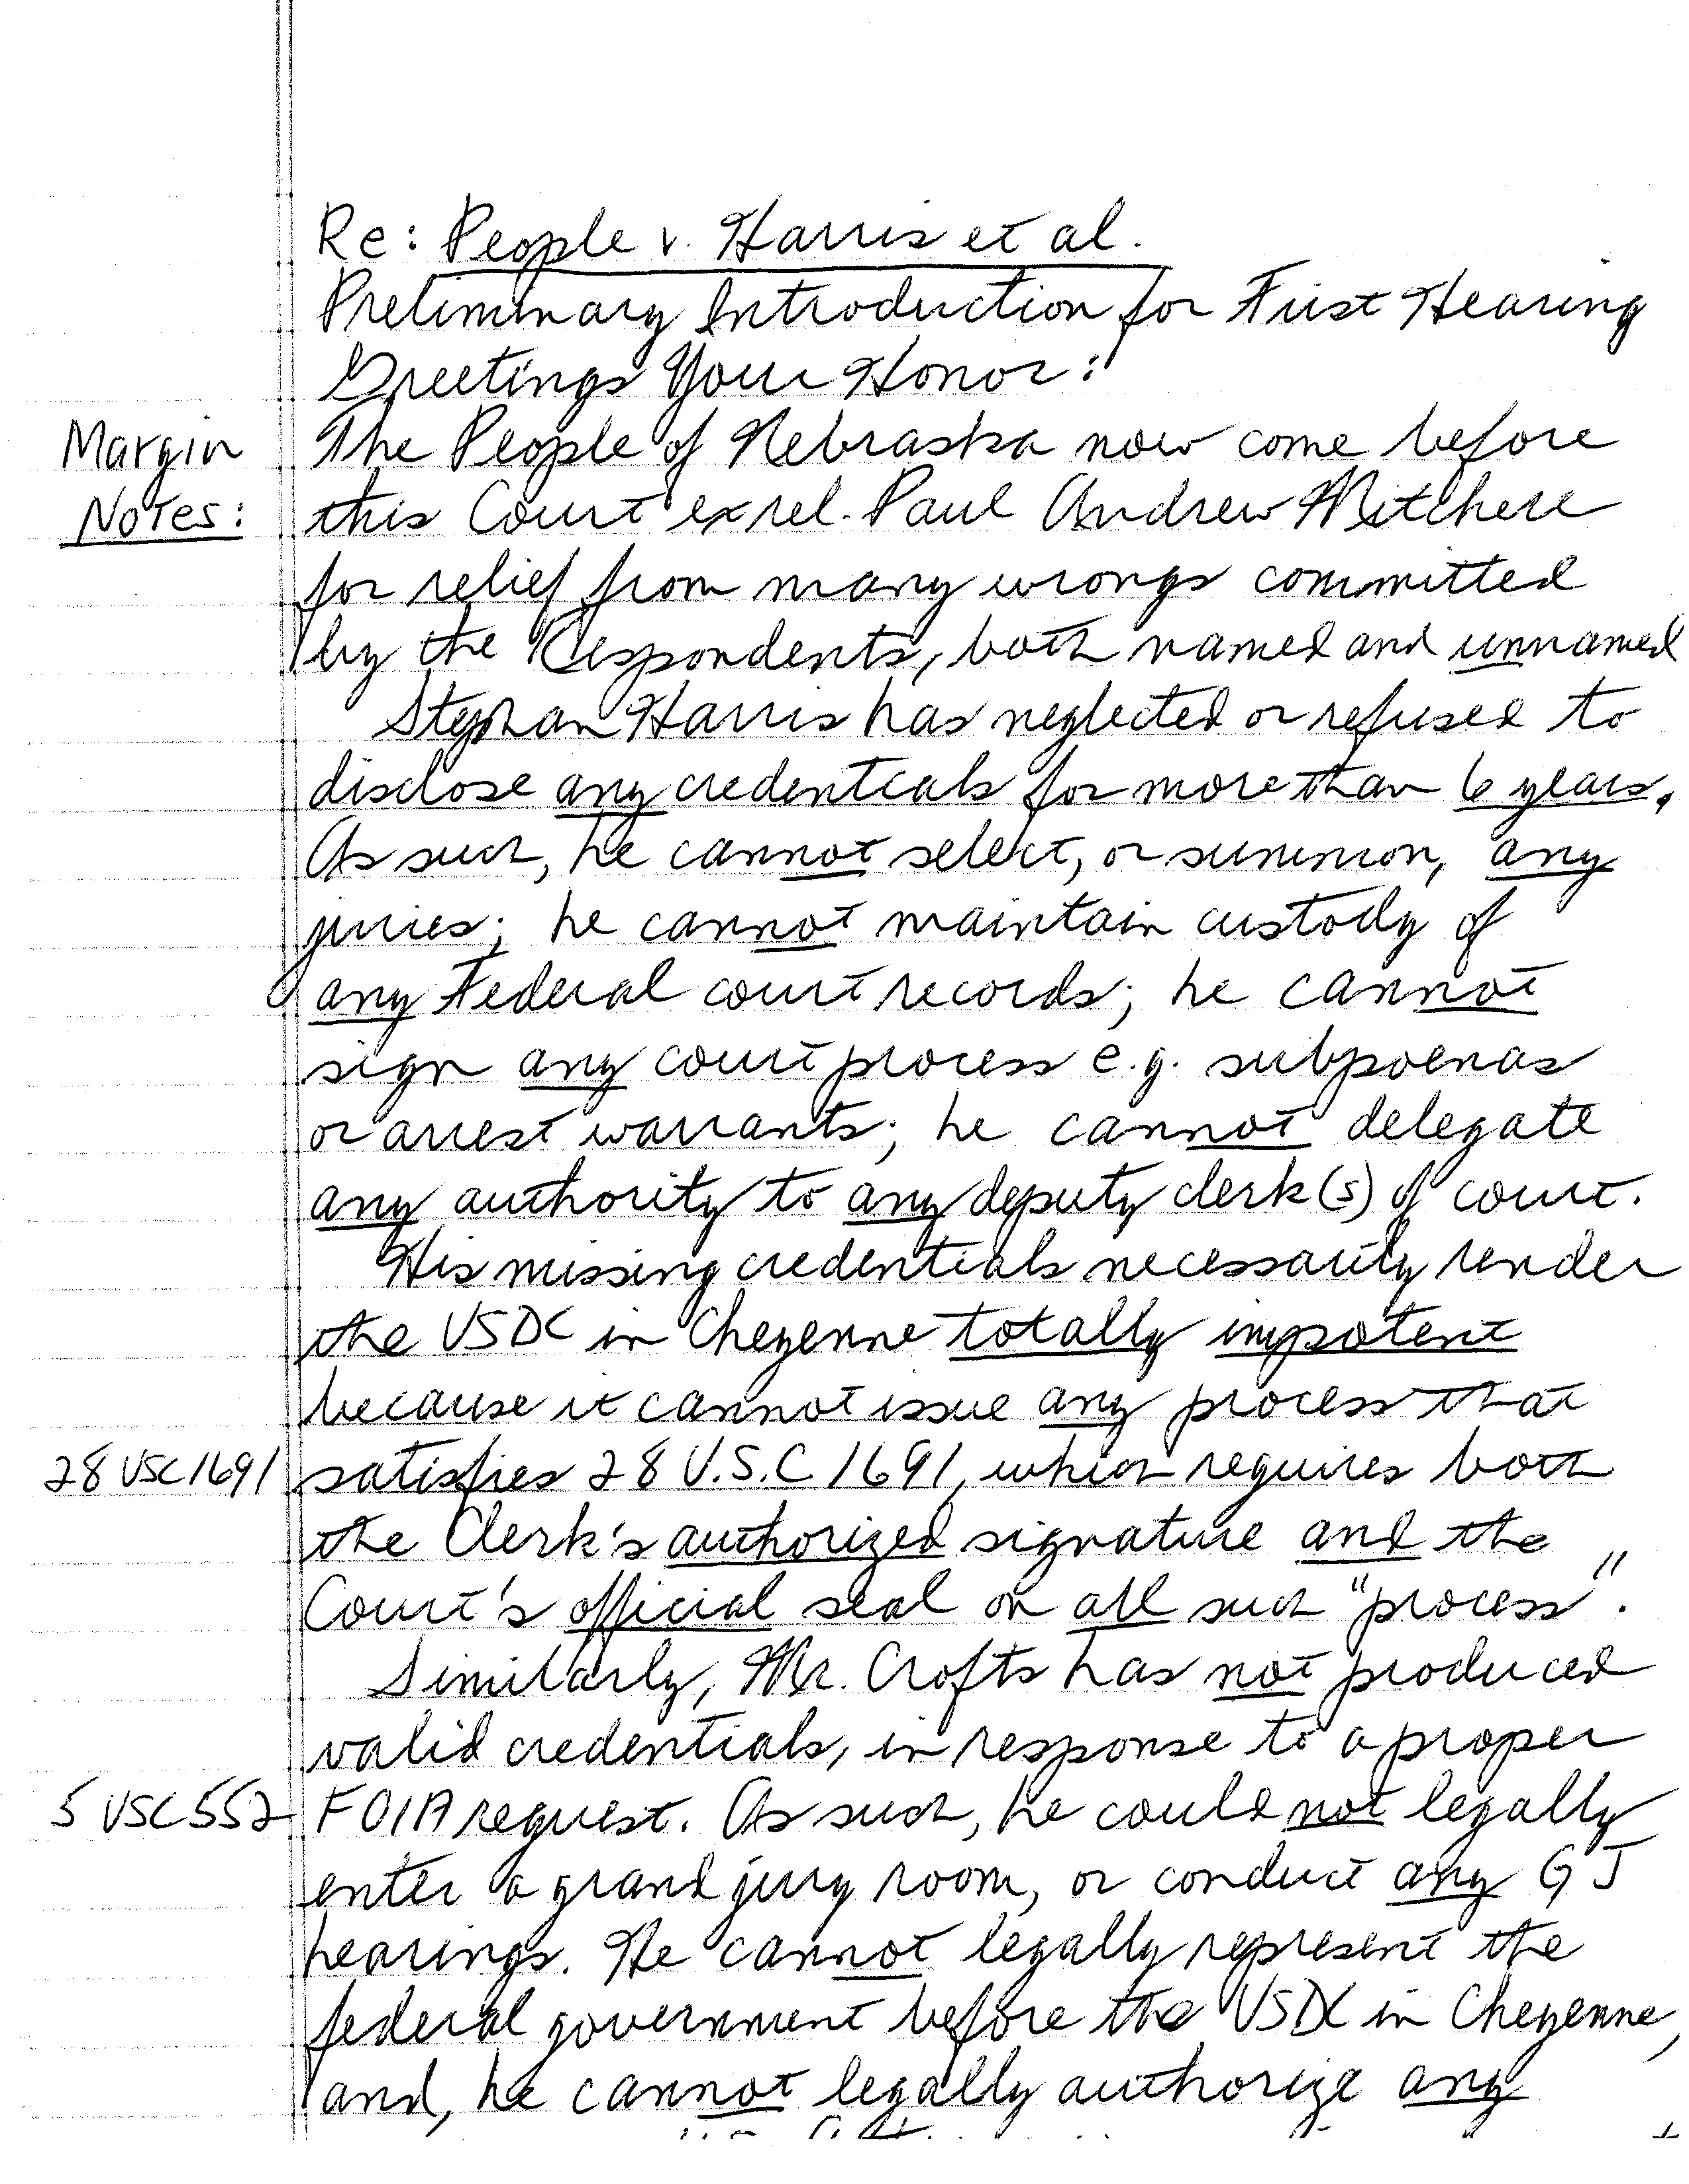 Re: People v. Harris et al.
Preliminary Introduction for First Hearing
Greetings Your Honor:
Margin The People of Nebraska now come before
Notes: this Court ex rel. Paul Andrew Mitchell
for relief from many wrongs committed
by the Respondents, both named and unnamed
Stephan Harris has neglected or refused to
disclose any credentials for more than 6 years.
As such, he cannot select, or summon, any
juries; he cannot maintain custody of
any Federal court records; he cannot
sign any court process e.g. subpoenas
or arrest warrants; he cannot delegate
any authority to any deputy clerk(s) of court.
His missing credentials necessarily render
the USDC in Cheyenne totally impotent
because it cannot issue any process that
28 USC 1691 satisfies 28 U.S.C 1691, which requires both
the Clerk's authorized signature and the
Court's official seal on all such "process".
Similarly, Mr. Crofts has not produced
valid credentials, in response to a proper
5 USC 552 FOIA request. As such, he could not legally
enter a grand jury room, or conduct any GJ
hearings. He cannot legally represent the
federal government before the USDC in Cheyenne,
and, he cannot legally authorize any